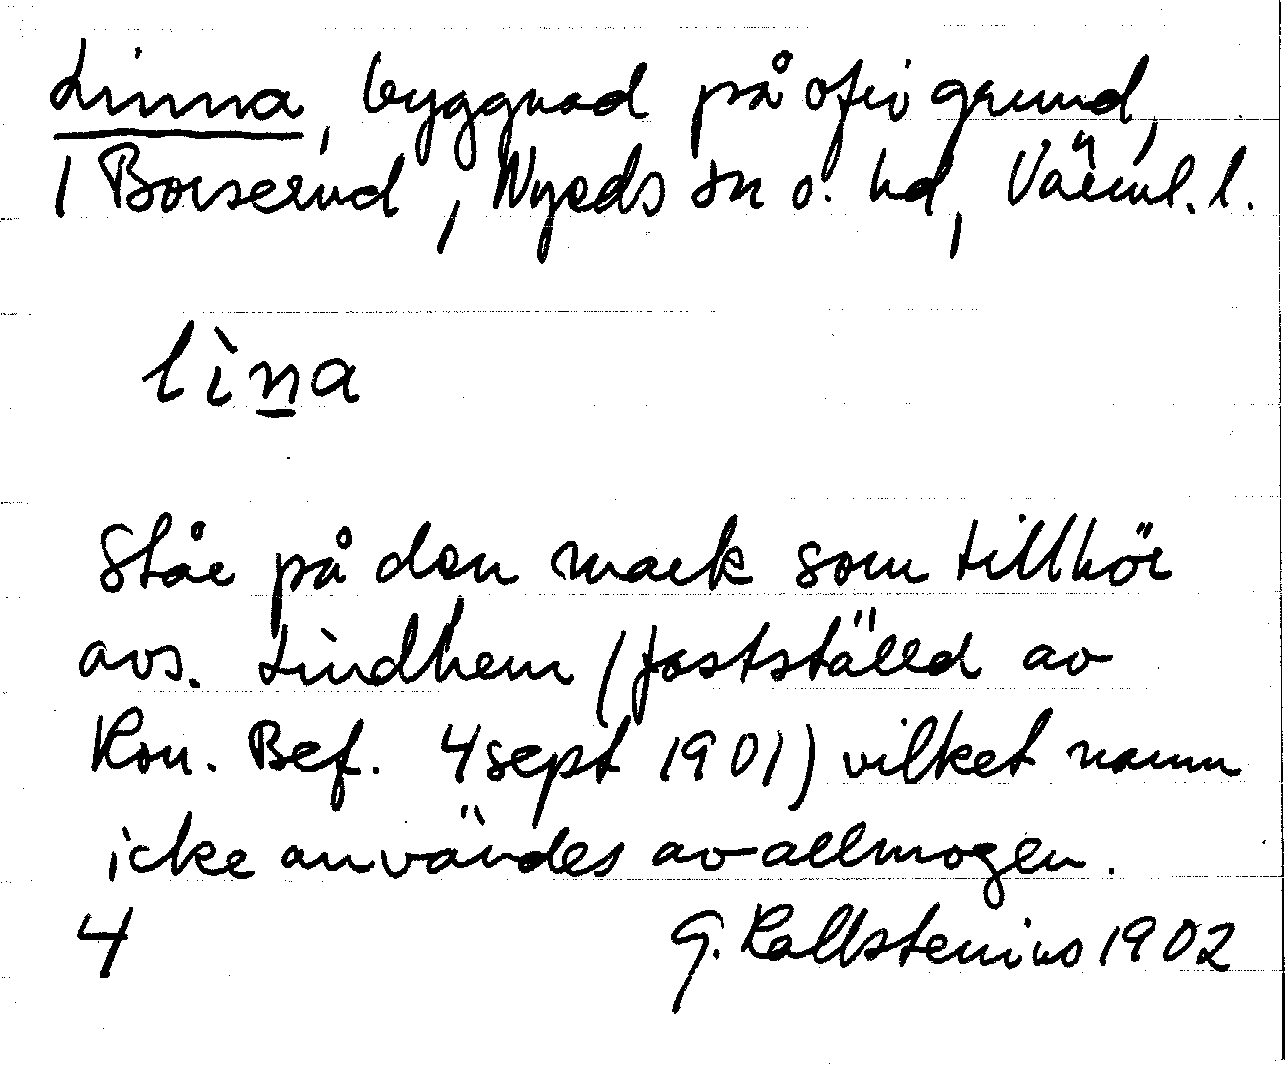 Linna, byggnad på ofri grund,
i Borserud, Nyeds sn o. hd, Värml. l.
lìn̲a
Står på den mark som tillhör
avs. Lindhem (fastställd av
Kon. Bef. 4 sept 1901) vilket namn
icke användes av allmogen.
4 G. Kallstenius 1902